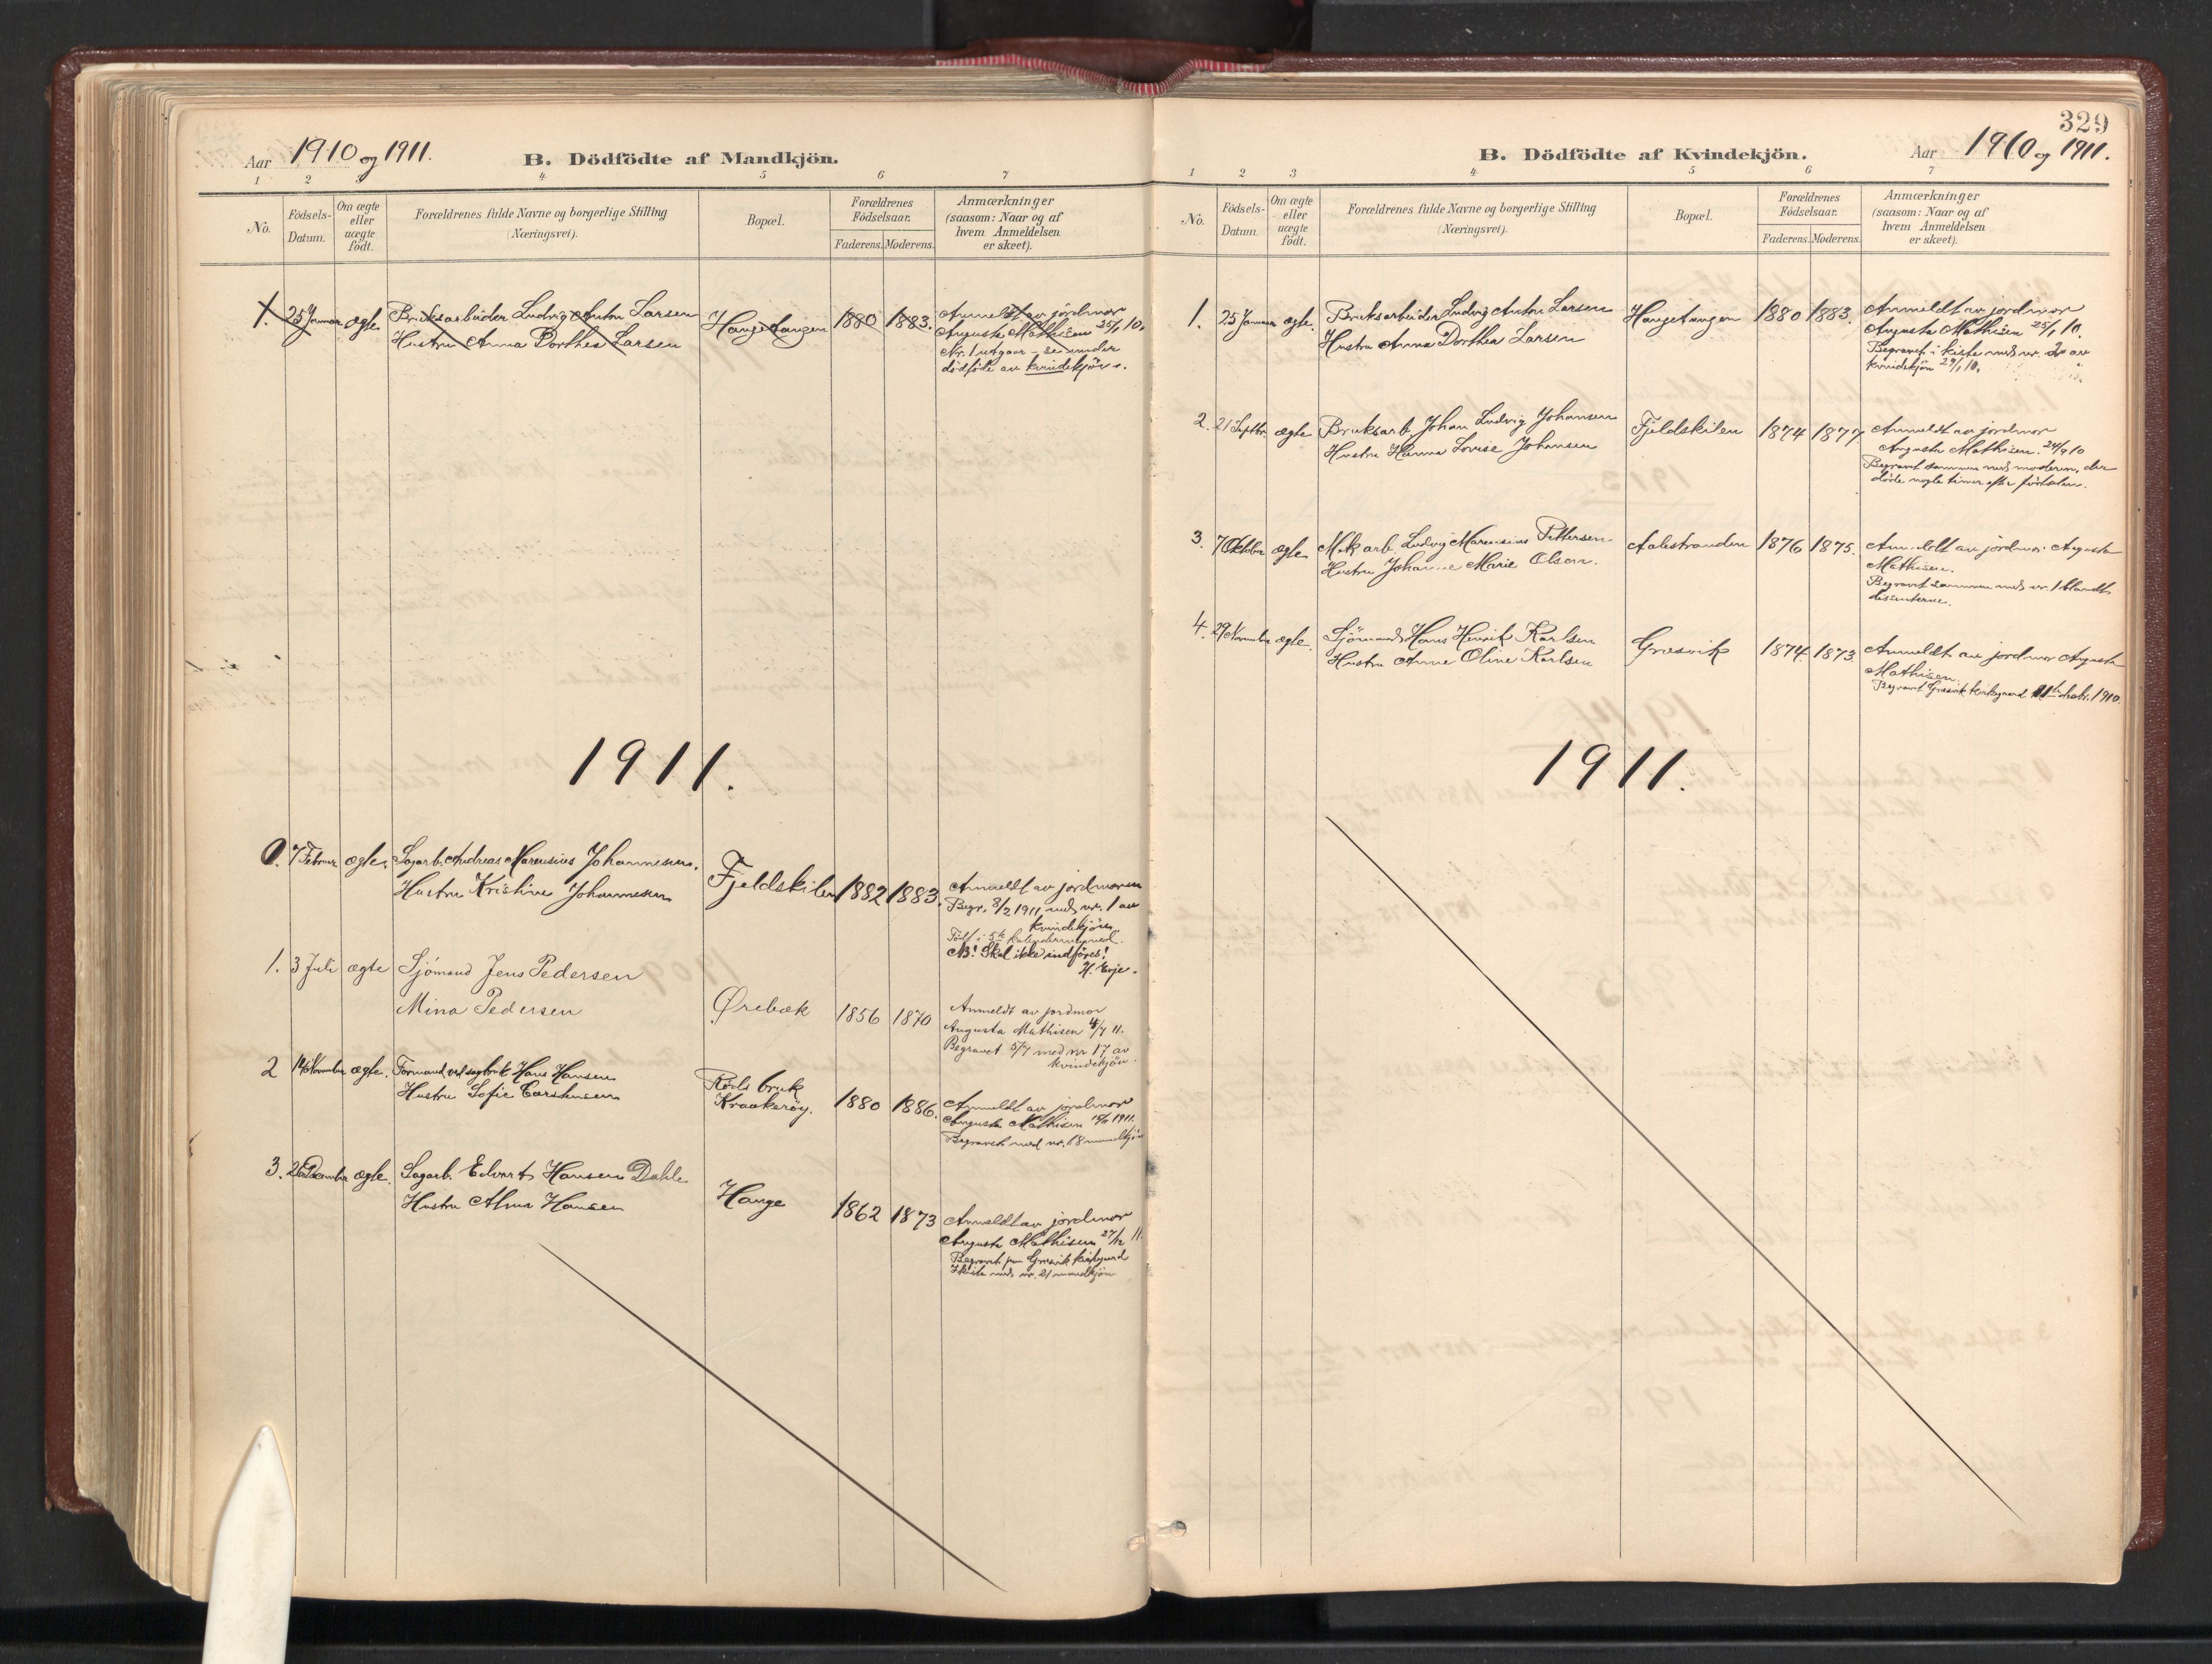 Aar 1910 og 1911.
B. Dödfödte af Mandkjön.
1 2 3 4 5 6 7
No.
Födsels-
Datum.
Om ægte
eller
uægte
födt.
Forældrenes fulde Navne og borgerlige Stilling
(Næringsvei).
Bopæl.
Forældrenes
Födselsaar.
Faderens. Moderens.
Anmærkninger
(saasom: Naar og af
hvem Anmeldelsen
er skeet).
1. 25 Januar ægte Bruksarbeider Ludvig Anton Larsen
Hustru Anna Dorthea Larsen
Haugetangen 1880 1883.
Anmeldt av jordmor
Augusta Mathisen 25/1 10.
Nr. 1 utgaar – se under
dödföde av kvindekjön.
1911.
0. 7 Februar ægte. Sagarb. Andreas Marensius Johannesen.
Hustru Kristine Johannesen
Fjeldskilen 1882 1883.
Anmeldt av jordmoren
Begr. 8/2 1911 med nr. 1 av
kvindekjön.
Född i 5te kalendermaaned.
NB! Skal ikke indföres!
H. Evje.
1. 3 Juli ægte Sjömand Jens Pedersen
Mina Pedersen
Ørebæk 1856 1870
Anmeldt av jordmor
Augusta Mathisen 4/7 11.
Begravet 5/7 med nr 17 av
kvindekjön.
2 14 November ægte. Formand ved sagbruk Hans Hansen
Hustru Sofie Carstensen
Röds bruk
Kraakeröy. 1880 1886.
Anmeldt av jordmor
Augusta Mathisen 1911.
Begravet med nr. 18 mandkjön
3. 26 Decembr ægte. Sagarb. Edvart Hansen Dahle
Hustru Alma Hansen
Hauge 1862 1873
Anmeldt av jordmor
Augusta Mathisen 27/12 11
Begravet paa Gresvik kirkegaard
I kiste med nr. 21 mandkjön
329
B. Dödfödte af Kvindekjön.
Aar 1910 og 1911.
1 2 3 4 5 6 7
No.
Födsels-
Datum.
Om ægte
eller
uægte
födt.
Forældrenes fulde Navne og borgerlige Stilling
(Næringsvei).
Bopæl.
Forældrenes
Födselsaar.
Faderens. Moderens.
Anmærkninger
(saasom: Naar og af
hvem Anmeldelsen
er skeet).
1. 25 Januar ægte. Bruksarbeider Ludvig Anton Larsen
Hustru Anna Dorthea Larsen
Haugetangen 1880 1883.
Anmeldt av jordmor
Augusta Mathisen 25/1 10.
Begravet i kiste med nr. 2 av
kvindekjön 29/1 10.
2. 21 Septbr. ægte Bruksarb. Johan Ludvig Johansen
Hustru Hanna Lovise Johansen
Fjeldskilen 1874 1877
Anmeldt av jordmor
Augusta Mathisen. 24/9 10
Begravet sammen med moderen, der
döde nogle timer efter födselen.
3. 7 Oktober ægte Mek. arb. Ludvig Marensius Pettersen
Hustru Johanne Marie Olsen.
Aalestranden 1876 1875.
Anmeldt av jordmor Augusta
Mathisen.
Begravet sammen med nr. 1 blandt
dissenterne.
4. 29 November ægte. Sjömand Hans Henrik Karlsen
Hustru Anne Oline Karlsen
Gresvik 1874. 1873.
Anmeldt av jordmor Augusta
Mathisen.
Begravet Gresvik kirkegaard decbr. 1910.
1911.